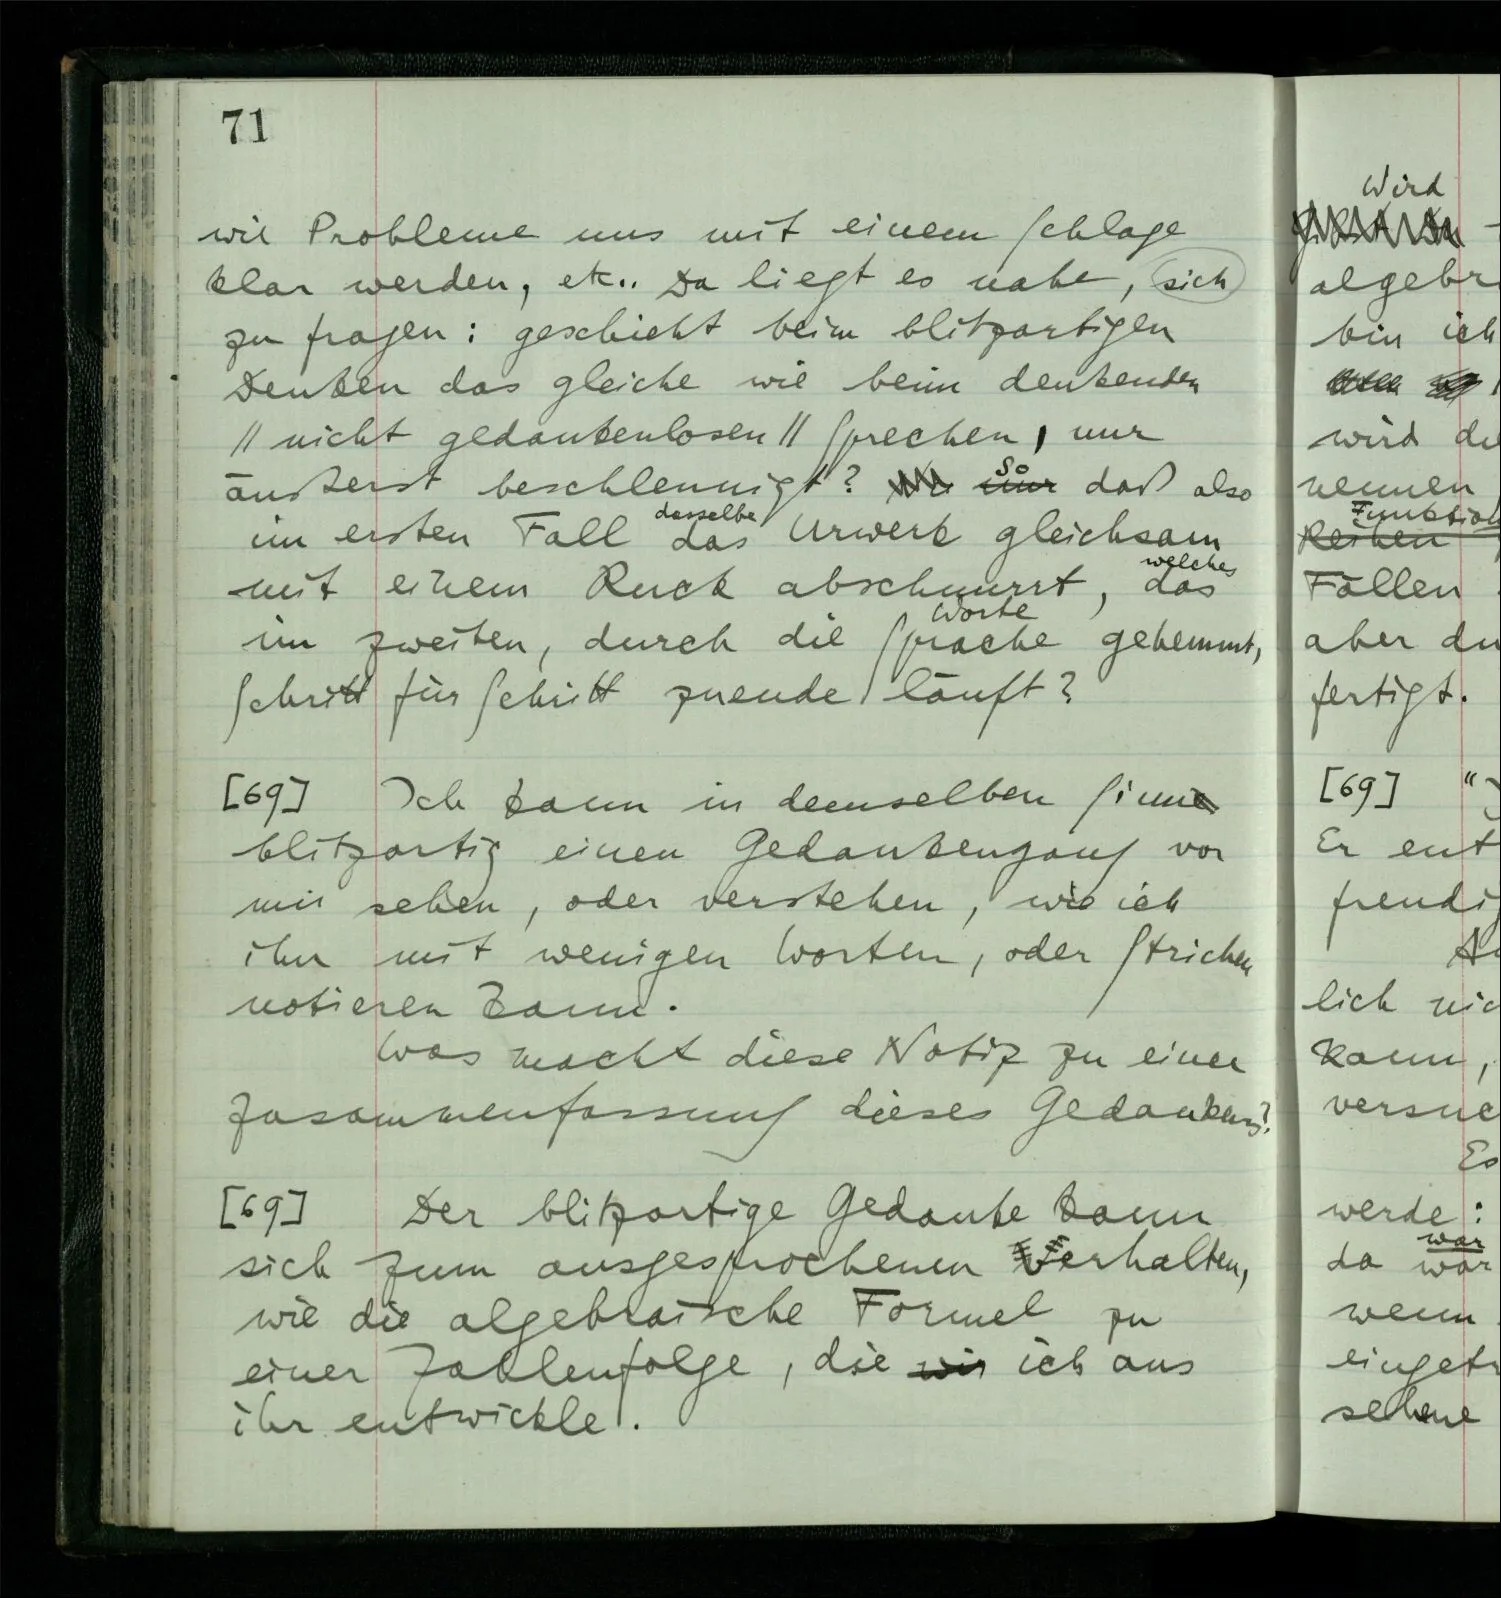 71
wie Probleme uns mit einem Schlage
klar werden, etc.. Da liegt es nahe, sich
zu fragen: geschieht beim blitzartigen
Denken das gleiche wie beim denkenden
// nicht gedankenlosen // Sprechen, nur
So
äußerst beschleunigt? nur daß also
dasselbe
im ersten Fall das Urwerk gleichsam
welches
mit einem Ruck abschnurrt, das
Worte
im zweiten, durch die Sprache gehemmt,
Schritt für Schritt zuende läuft?
[69] Ich kann in demselben Sinne
blitzartig einen Gedankengang vor
mir sehen, oder verstehen, wie ich
ihn mit wenigen Worten, oder Strichen
notieren kann.
Was macht diese Notiz zu einer
Zusammenfassung dieses Gedankens?
[69] Der blitzartige Gedanke kann
sich zum ausgesprochenen verhalten,
wie die algebraische Formel zu
einer Zahlenfolge, die wir ich aus
ihr entwickle.
Wird
algebr
bin ich
wird du
nennen
Funktion
Reihen
Fällen
aber du
fertigt.
[69] "
Er ent
freudig
lich nic
kann,
versuc
Es
werde:
war
da war
wenn
eingetr
sehene